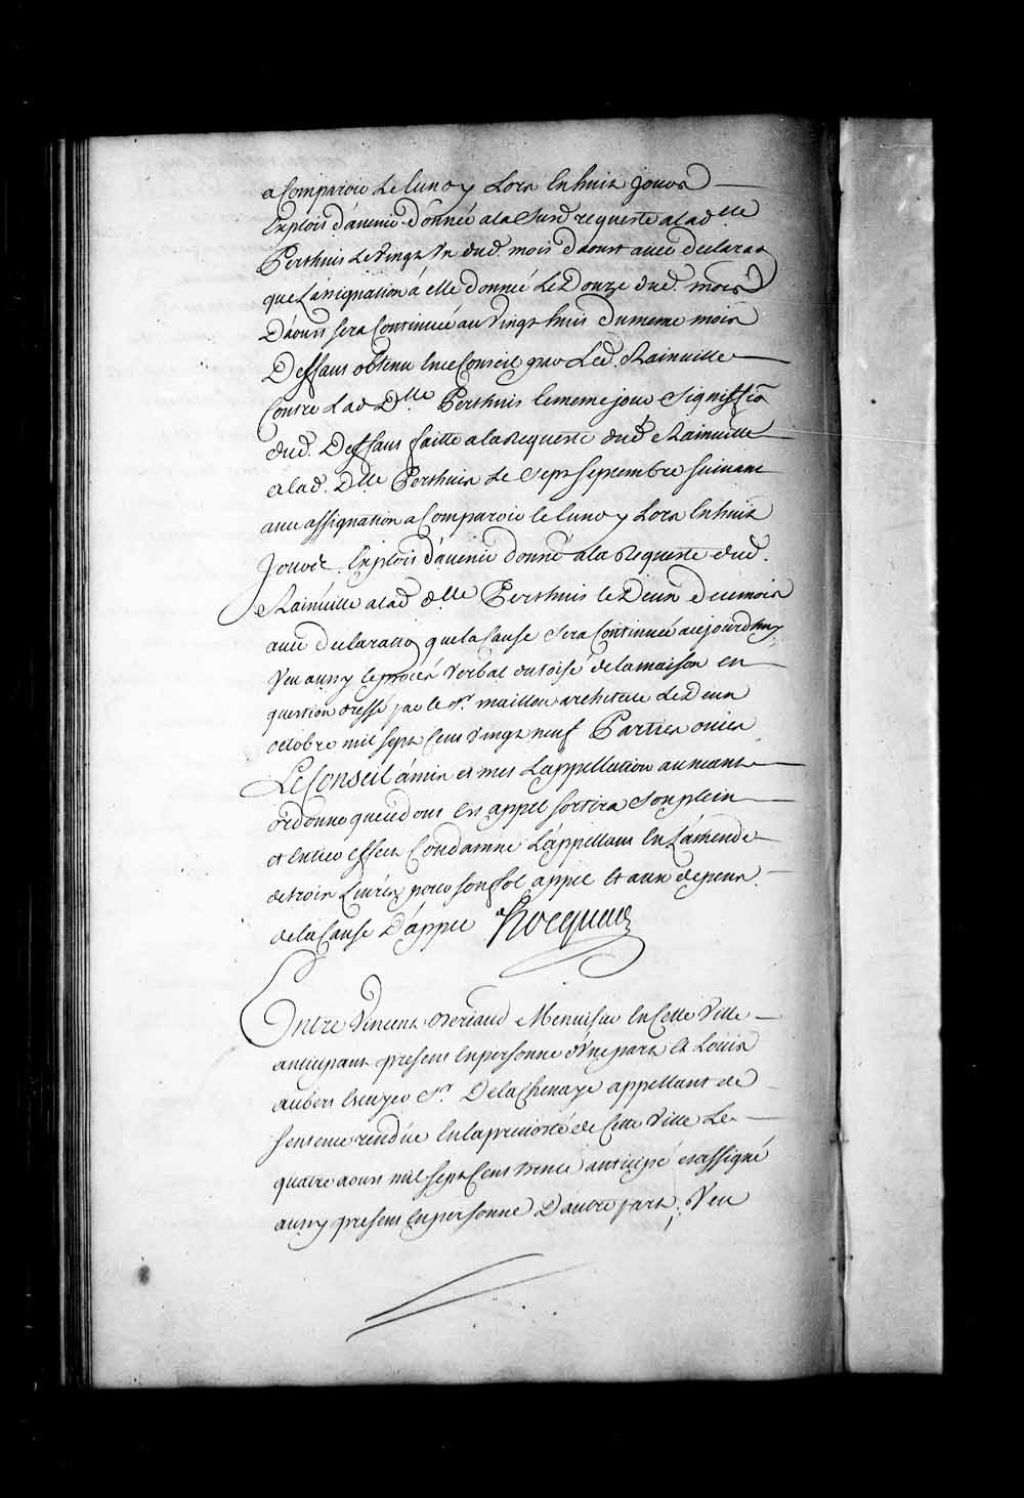 a Comparoir Le lundy Lors En huit Jours
Exploit d'avenir donnée a la Susd. requeste a lad. Dlle
Perthuis Le Vingt Un dud. mois Daoust avec declaraon
que L'assignation a elle donnée Le Douze dud. mois
Daoust sera Continuée au Vingt huit du meme mois
Deffaut obtenu En ce Conseil par Led. Rainville
Contre Lad. Dlle Perthuis le meme jour Signiffion
dud. Deffaut faitte a la Requeste dud. Rainville
a lad. Dlle Perthuis Le Sept Septembre suivant
avec assignation a Comparoir le lundy Lors En huit
Jours. Exploit d'avenir donné a la Requeste dud.
Rainville a lad. Dlle Perthuis le Deux de ce mois
avec declaraon que la Cause Sera Continuée aujourdhuy
Veu aussy le procés Verbal du toisé de la maison en
question dressé par le Sr. maillou architecte Le Deux
octobre mil sept Cens Vingt neuf Parties ouies
Le Conseil a mis et met L'appellation au neant
ordonne que ce dont Est appel sortira Son plein
et Entier effect Condamne L'appellant En L'amende
de trois Livres pour son fol appel Et aux depens
de la Cause D'appel Hocquart
Entre Vincent Menuisier En Cette Ville
anticipant present En personne d'Une part Et Louis
aubert Ecuyer Sr. De la Chenaye appellant de
Sentence rendüe En la prevosté de Cette Ville Le
quatre aoust mil sept Cens trente anticipé et assigné
aussy present En personne D'autre part; Veu